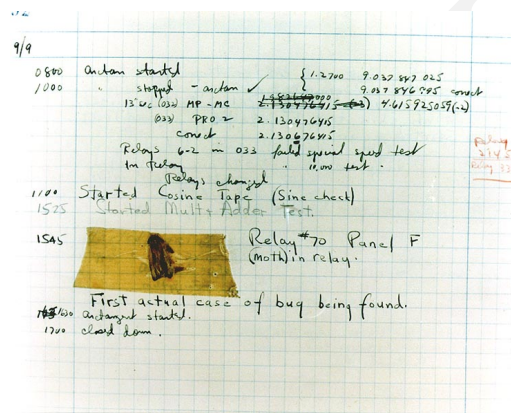 9/9
0800 Antan started
1000 " stopped - antan ✓ { 1.2700 9.037 847 025
9.037 846 995 conect
13"uc (032) MP-MC 2.130476415 4.615925059(-2)
(033) PRO 2 2.130476415
conect 2.130676415
Relays 6-2 in 033 failed special speed test
In Relay " 10.000 test.
Relay
2145
Relays changed
1100 Started Cosine Tape (Sine check)
1525 Started Mult+Adder Test.
1545 Relay #70 Panel F
(Moth) in relay.
First actual case of bug being found.
1630 antangent started.
1700 closed down.